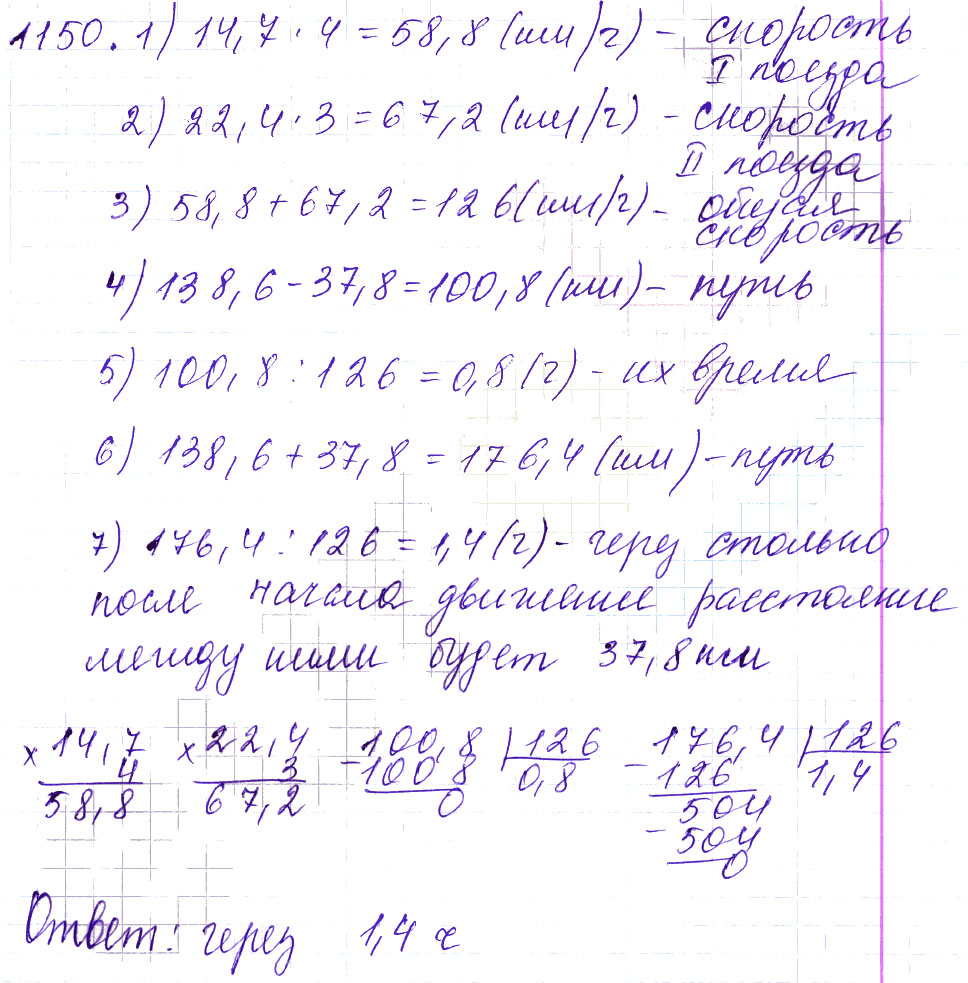 1150. 1) 14,7 · 4 = 58,8 (км/ч) - скорость
I поезда
2) 22,4 · 3 = 67,2 (км/ч) - скорость
II поезда
3) 58,8 + 67,2 = 126 (км/ч) - общая
скорость
4) 138,6 - 37,8 = 100,8 (км) - путь
5) 100,8 : 126 = 0,8 (ч) - их время
6) 138,6 + 37,8 = 176,4 (км) - путь
7) 176,4 : 126 = 1,4 (ч) - через столько
после начала движение расстояние
между ними будет 37,8 км
× 14,7 × 22,4 - 100,8 | 126 - 176,4 | 126
4 3 100 8 0,8 126 1,4
58,8 67,2 0 504
- 504
0
Ответ: через 1,4 ч